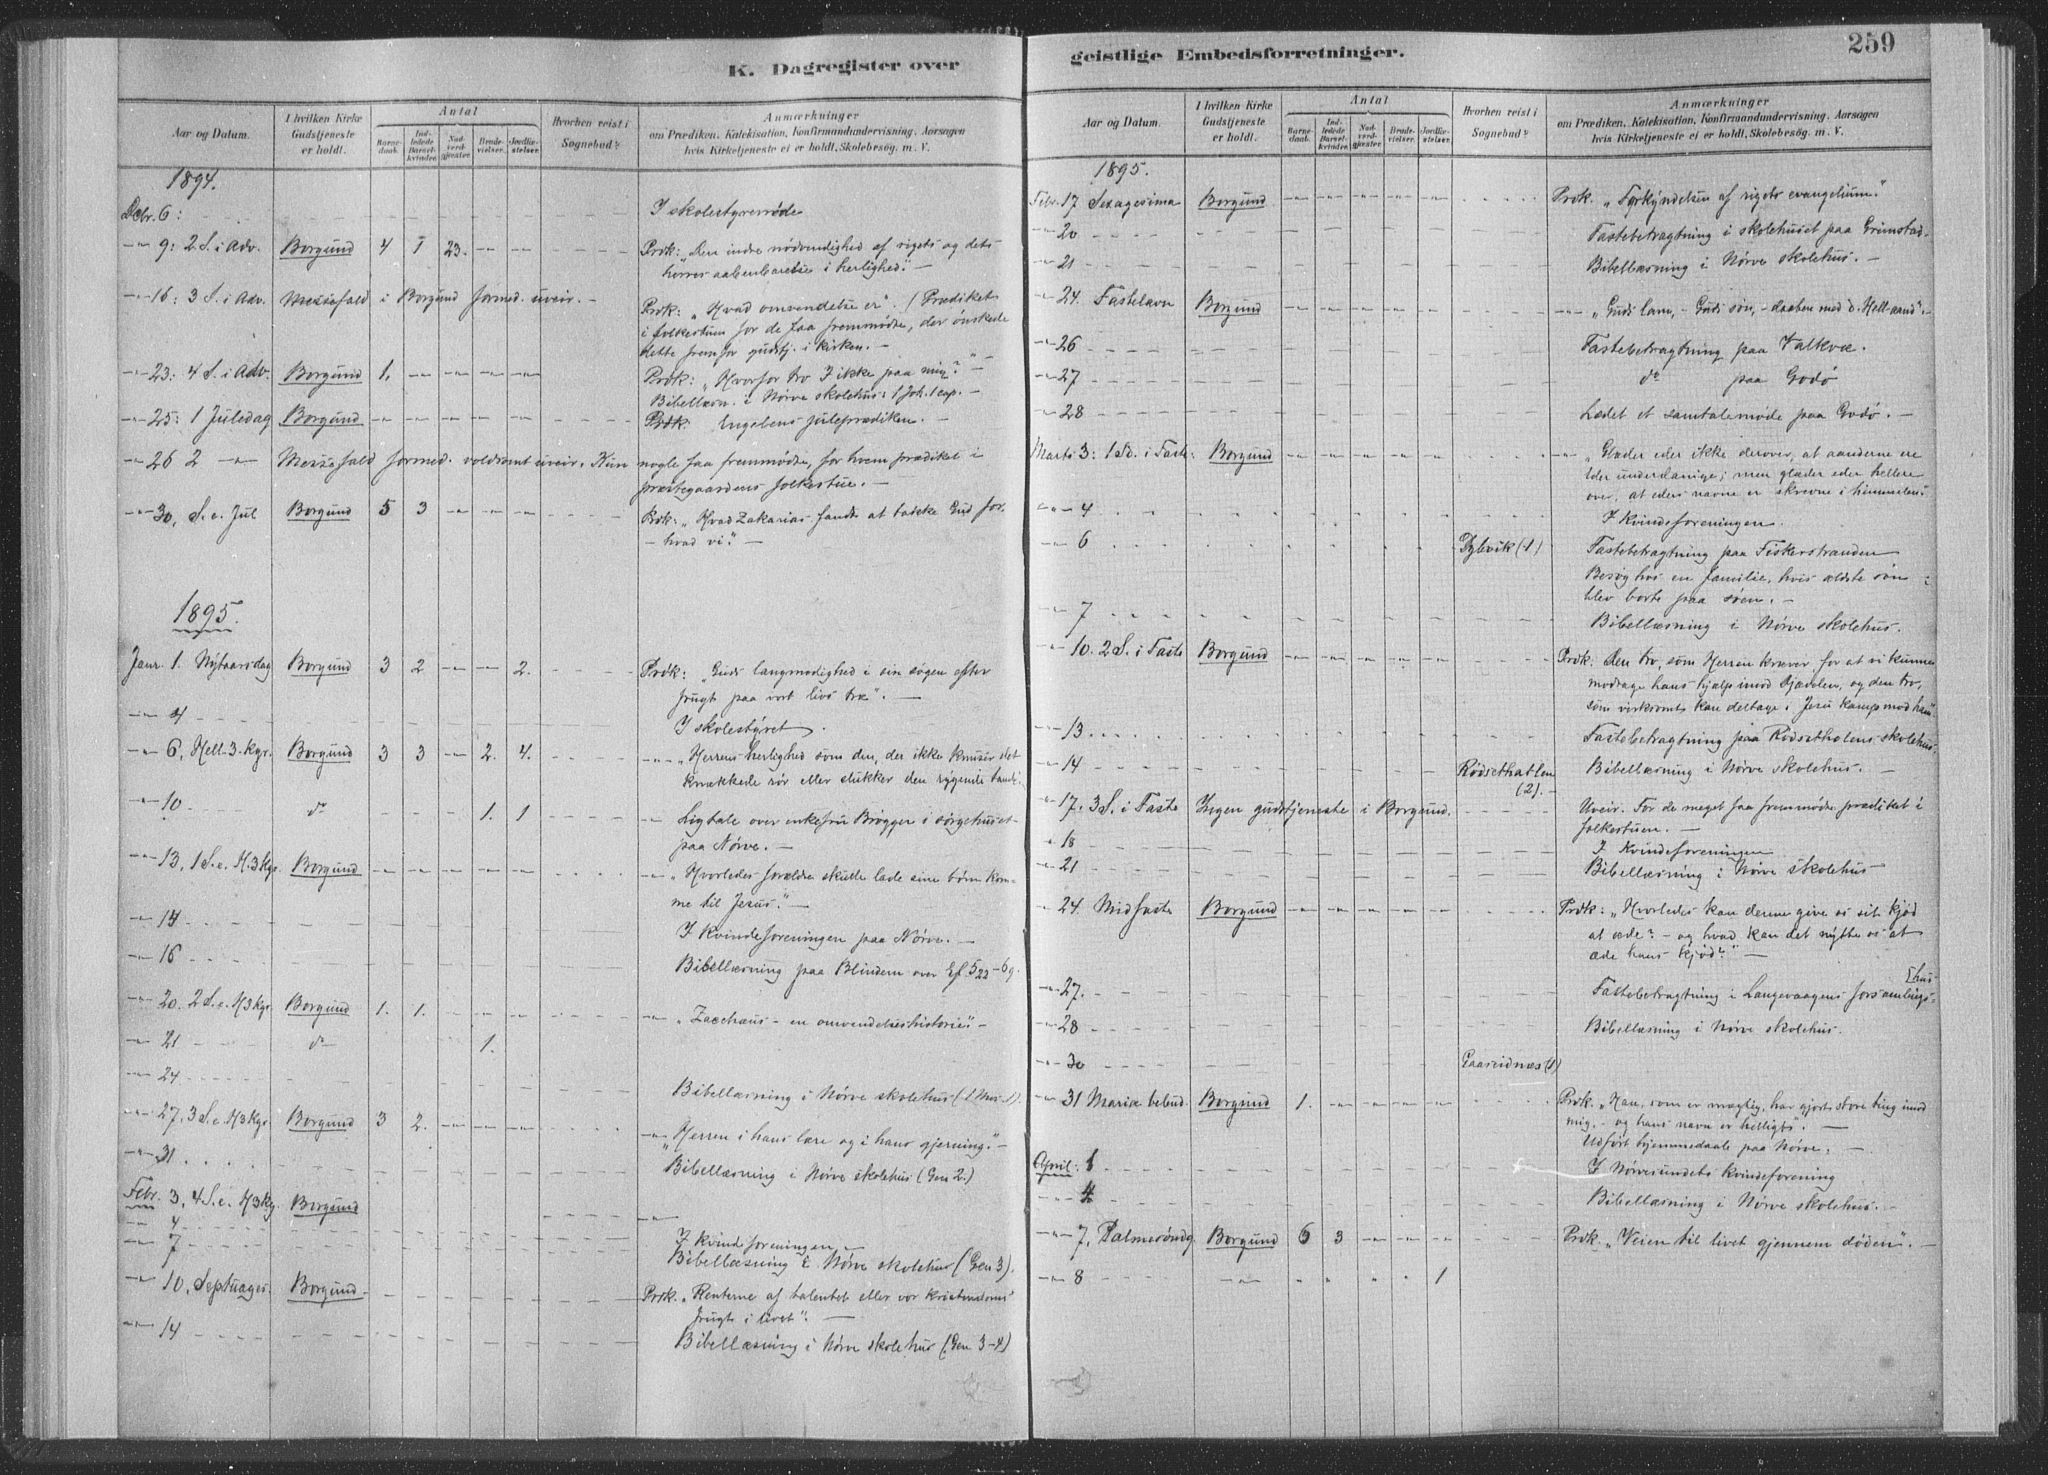 K. Dagregister over
Aar og Datum.
I hvilken Kirke Gudstjeneste er holdt.
Antal
Barnedaab.
Indledede Barselkvinder.
Nadverdgjæster.
Brudevielser.
Jordfæstelser.
Hvorhen reist i Sognebud?
Anmærkninger
om Prædiken, Katekisation, Konfirmandundervisning, Aarsagen
hvis Kirketjeneste ei er holdt, Skolebesøg. m. V.
1894.
Dcbr. 6: I skolestyremøde
-"- 9: 2 S. i Adv. Borgund 4 1 23. - - Prdk: "Den indre nødvendighed af rigets og dets
herres aabenbarelse i herlighed." -
-"- 16: 3 S. i Adv. Messefald i Borgund formed. uveir. - Prdk: "Hvad omvendelse er". (Prædiket
i folkestuen for de faa fremmødte, der ønskede
dette fremfor gudstj. i kirken. -
-"- 23: 4 S. i Adv. Borgund 1. - - - - Prdk: "Hvorfor tro I ikke paa mig?" -
Bibellæsn. i Nørve skolehus: 1 Joh. 1 cap. -
-"- 25: 1 Juledag Borgund - - - - - Prdk: Engelens juleprædiken. -
-"- 26 2 -"- Messefald formed. voldsomt uveir. Kun nogle faa fremmødte, for hvem prædiket i
præstegaardens folkestue. -
-"- 30, S. e. Jul Borgund 5 3 - - - Prdk: "Hvad Zakarias fandt at takke Gud for
- hvad vi." -
1895.
Janr. 1. Nytaarsdag Borgund 3 2 - - 2. Prdk: "Guds langmodighed i sin søgen efter
frugt paa vort livs træ". -
-"- 4 I skolestyret.
-"- 6, Hell. 3. kgr. Borgund 3 3 - 2. 4. -"- "Herrens herlighed som den, der ikke knuser det
knækkede rør eller slukker den rygende tande."
-"- 10 do 1. 1 - Ligtale over enkefru Brøgger i sørgehuset
paa Nørve. -
-"- 13, 1 S. e. H3kgr. Borgund - - - - - -"- "Hvorledes forældre skulle lade sine børn kom-
me til Jesus." -
-"- 14 I Kvindeforeningen paa Nørve. -
-"- 16 Bibellæsning paa Blindem over Ef. 5 22 - 6 9.
-"- 20. 2 S. e. H3kgr. Borgund 1. 1. - - - -"- "Zacchæus - en omvendelseshistorie" -
-"- 21 do 1.
-"- 24 Bibellæsning i Nørve skolehus (1 Mos. 1).
-"- 27, 3 S. e. H3kgr. Borgund 3 2. - - - -"- "Herren i hans lære og i hans gjerning." -
-"- 31 Bibellæsning i Nørve skolehus (Gen 2.)
Febr. 3, 4 S. e. H3kg. Borgund
-"- 4 I Kvindeforeningen -
-"- 7 Bibellæsning i Nørve skolehus (Gen 3).
-"- 10, Septuages. Borgund - Prdk. "Renterne af talentet eller vor kristendoms
frugt i livet". -
-"- 14 Bibellæsning i Nørve skolehus (Gen 3-4)
geistlige Embedsforretninger.
259
Aar og Datum.
I hvilken Kirke Gudstjeneste er holdt.
Antal
Barnedaab.
Indledede Barselkvinder.
Nadverdgjæster.
Brudevielser.
Jordfæstelser.
Hvorhen reist i Sognebud?
Anmærkninger
om Prædiken, Katekisation, Konfirmandundervisning, Aarsagen
hvis Kirketjeneste ei er holdt, Skolebesøg. m. V.
1895.
Febr. 17 Sexagesima Borgund - - - - - Prdk. "Forkyndelsen af rigets evangelium."
-"- 20 Fastebetragtning i skolehuset paa Grimstad.
-"- 21 Bibellæsning i Nørve skolehus. -
-"- 24. Fastelavn Borgund -"- "Guds lam, - Guds søn, - daaben med d. Hell. aand". -
-"- 26 Fastebetragtning paa Valkvæ.
-"- 27 do paa Godø
-"- 28 Ledet et samtalemøde paa Godø. -
Marts 3: 1 S. i Faste: Borgund - - - - - -"- "Glæder eder ikke derover, at aanderne ere
eder underdanige; men glæder eder hellere
over, at eders navne er skrevne i himmelen."
-"- 4 I Kvindeforeningen.
-"- 6 Dybvik (1) Fastebetragtning paa Fiskerstranden
Besøg hos en familie, hvis ældste søn
blev borte paa søen. -
-"- 7 Bibellæsning i Nørve skolehus.
-"- 10. 2 S. i Faste Borgund - - - - - Prdk: Den tro, som Herren kræver for at vi kunne
modtage hans hjælp imod djævelen, og den tro,
som virksomt kan deltage i Jesu kamp mod ham."
-"- 13 Fastebetragtning paa Rødsetholens skolehus.
-"- 14 Rødsethatlen (2). - Bibellæsning i Nørve skolehus. -
-"- 17. 3 S. i Faste Ingen gudstjeneste i Borgund. Uveir. For de meget faa fremmødte prædiket i
folkestuen. -
-"- 18 I Kvindeforeningen
-"- 21 Bibellæsning i Nørve skolehus
-"- 24. Midfaste Borgund - - - - - Prdk: "Hvorledes kan denne give os sit kjød
at æde? - og hvad kan det nytte os at
æde hans kjød?" -
-"- 27. Fastebetragtning i Langevaagens forsamlings-
[hus
-"- 28 Bibellæsning i Nørve skolehus.
-"- 30 Gaaseidnæs (1)
-"- 31 Mariæ bebud. Borgund 1. - - - - Prdk. "Han, som er mægtig, har gjort store ting imod
mig, - og hans navn er helligt." -
Udført hjemmedaab paa Nørve. -
April. 1 I Nørvesundets kvindeforening
-"- 4 Bibellæsning i Nørve skolehus. -
-"- 7, Palmesøndg Borgund 6 3 - - - Prdk. "Veien til livet gjennem døden". -
-"- 8 -"- 1